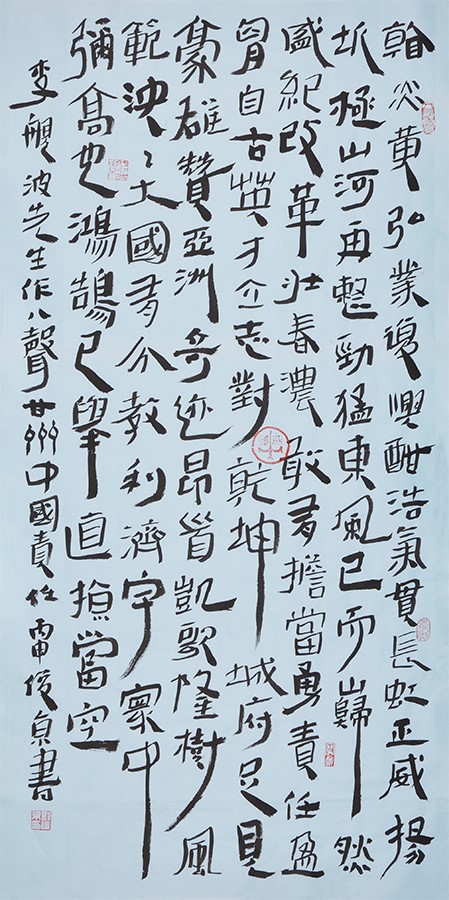 炎黄弘業復興酣浩氣貫長虹正威揚
極山河再整勁猛東風已而巋然
盛紀改革壯春濃敢有擔當勇責任盈
胷自古英才立志對乾坤城府足見
豪雄贊亞洲奇迹昂首凱歌隆樹風
範泱〻大國有分教利濟宇寰中
彌高也鴻鵠已舉直掠當空
李艦波先生作八聲甘州中國責任丙申俊貞書